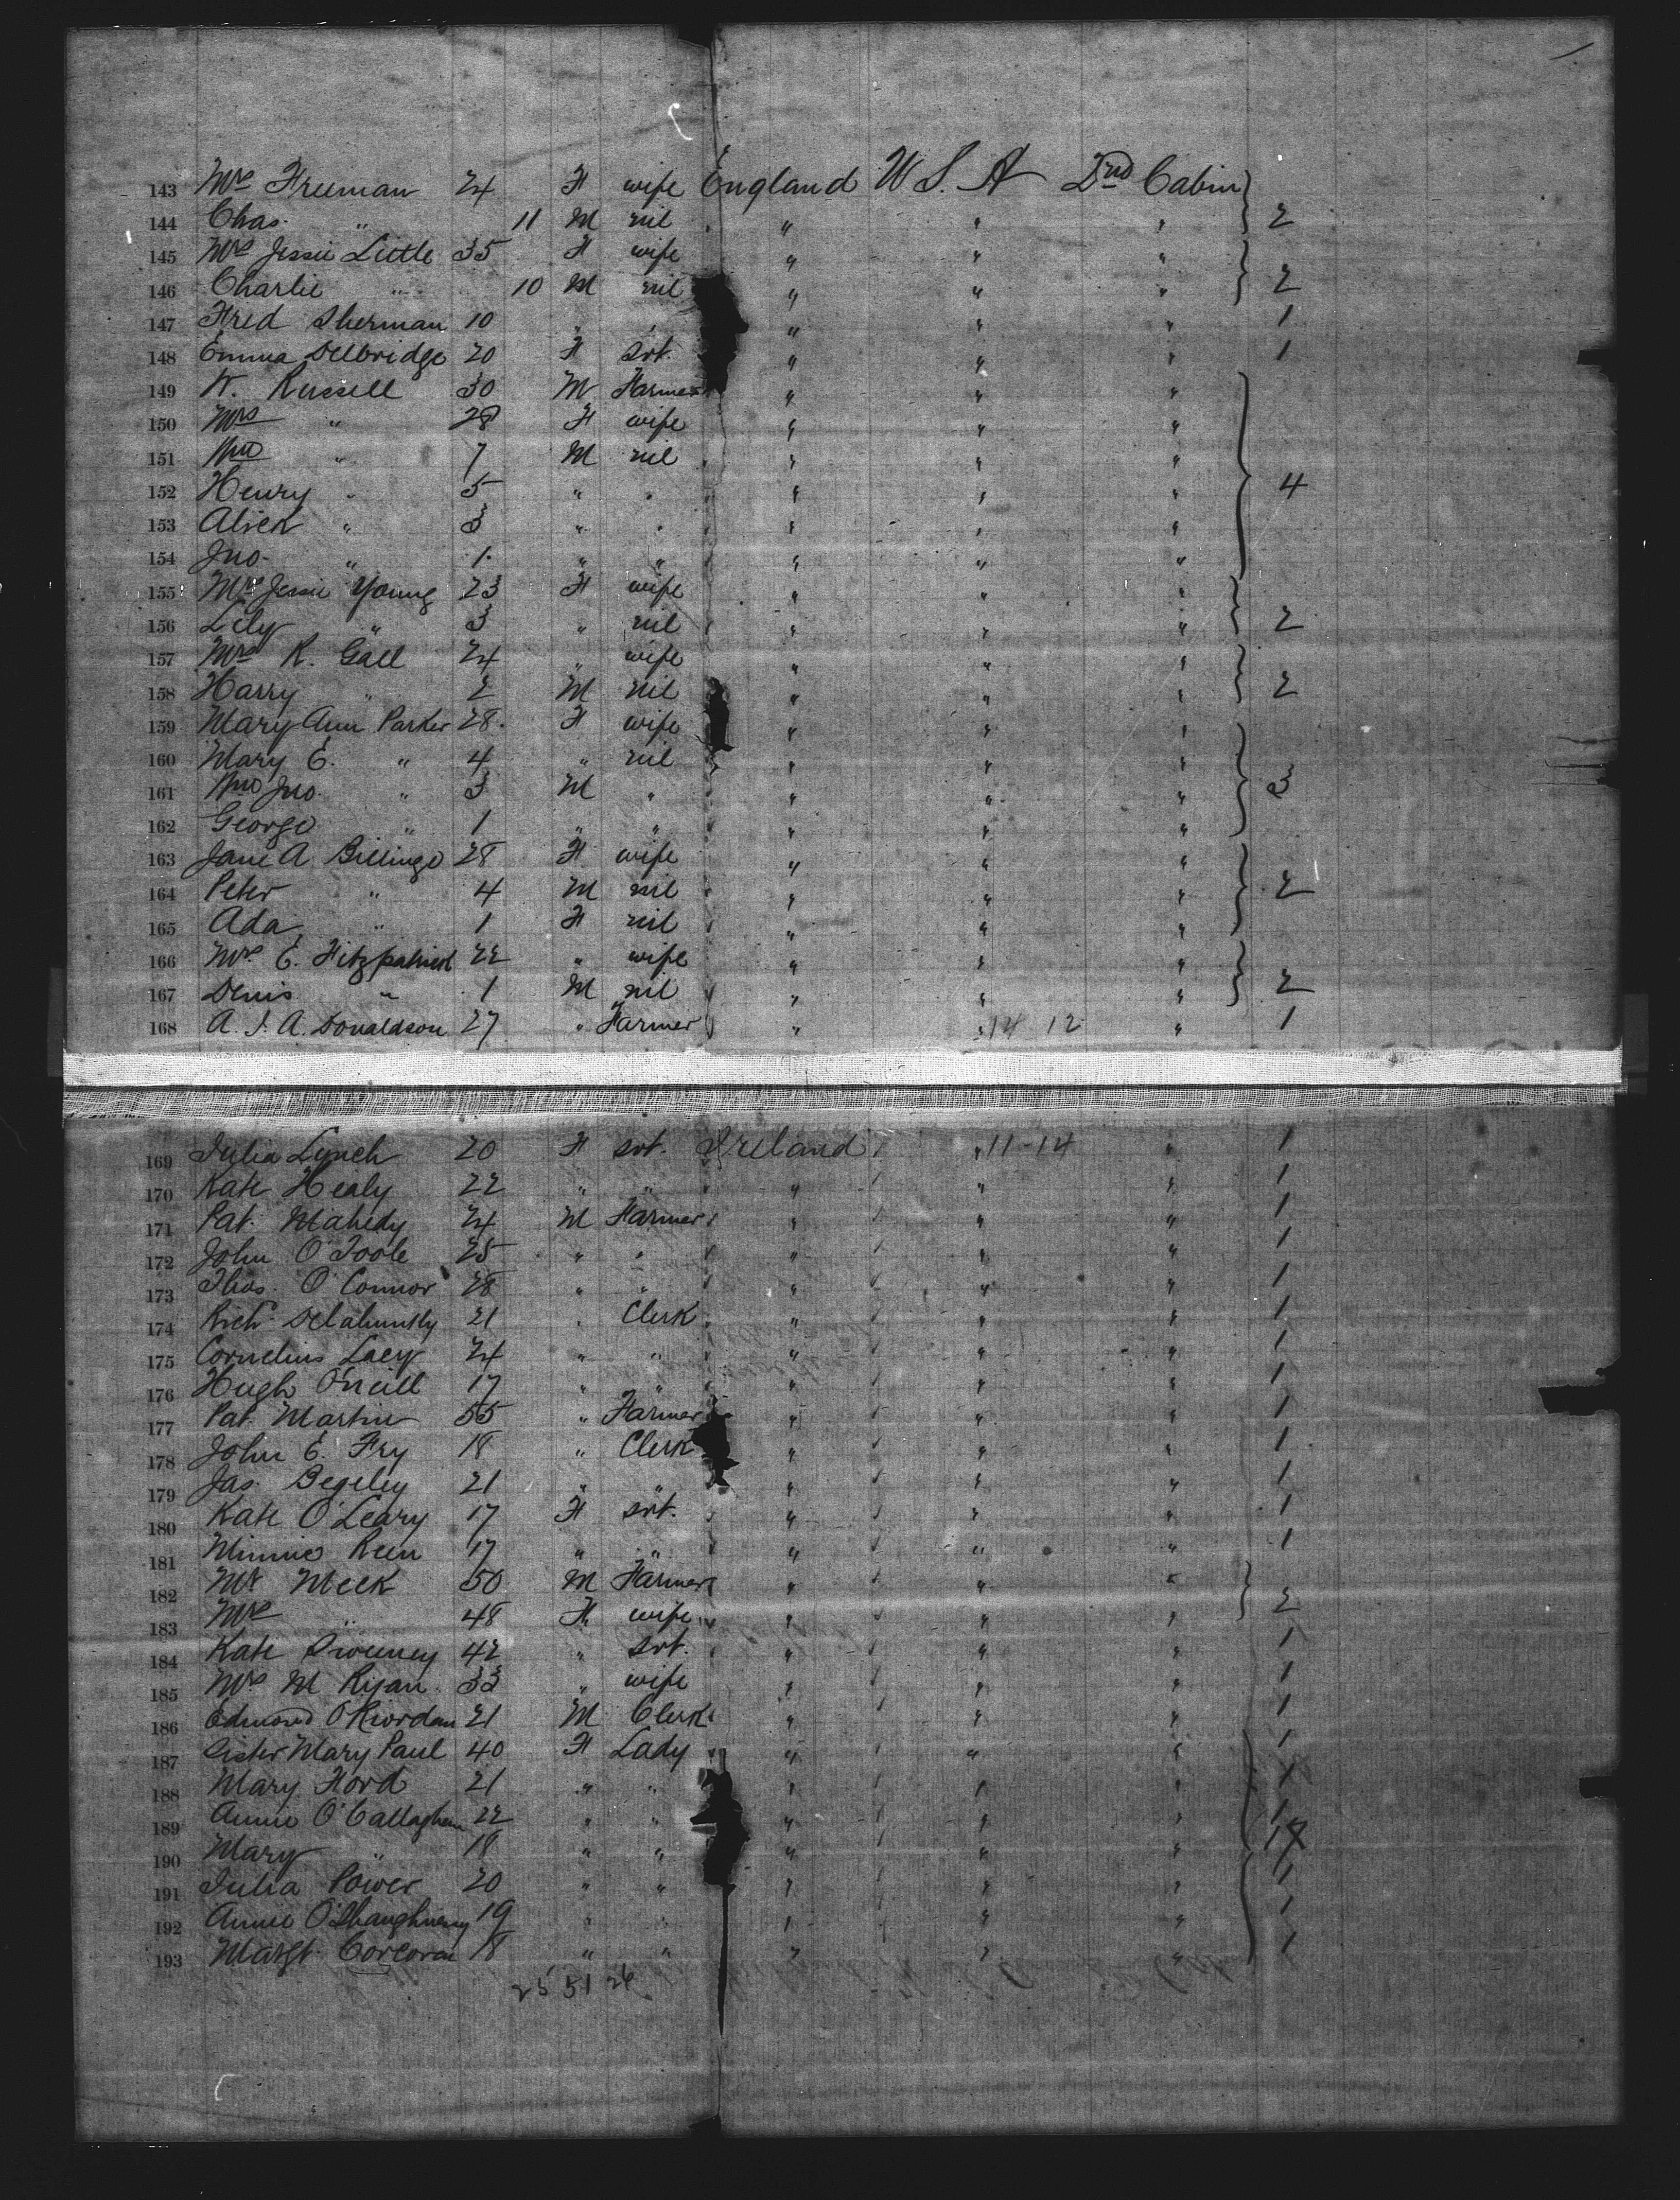 143 Mrs Freeman 24 F wife England U S. A 2nd Cabin
144 Chas. " 11 M nil " " " 2
145 Mrs Jessie Little 35 F wife " " "
146 Charlie " 10 M nil " " " 2
147 Fred Sherman 10 " " " " " 1
148 Emma Delbridge 20 F Svt. " " " 1
149 W. Russell 30 M Farmer " " "
150 Mrs " 28 F wife " " "
151 Wm " 7 M nil " " "
152 Henry " 5 " " " " " 4
153 Alick " 3 " " " " "
154 Jno. " 1 " " " " "
155 Mrs Jessie Young 23 F wife " " "
156 Lily " 3 " nil " " " 2
157 Mrs R. Gall 24 " wife " " "
158 Harry " 2 M nil " " " 2
159 Mary Ann Parker 28 F wife " " "
160 Mary E. " 4 " nil " " "
161 Wm Jno. " 3 M " " " " 3
162 George " 1 " " " " "
163 Jane A Billinge 28 F wife " " "
164 Peter " 4 M nil " " " 2
165 Ada " 1 F nil " " "
166 Mrs E. Fitzpatrick 22 " wife " " "
167 Denis " 1 M nil " " " 2
168 A. J. A. Donaldson 27 " Farmer " " 14 12 " 1
169 Julia Lynch 20 F svt. Ireland " 11-14 " 1
170 Kate Healy 22 " " " " " 1
171 Pat. Mahedy 24 M Farmer " " " 1
172 John O'Toole 25 " " " " " 1
173 Thos. O'Connor 28 " " " " " 1
174 Richd Delahuntly 21 " Clerk " " " 1
175 Cornelius Lacy 24 " " " " " 1
176 Hugh O'Neill 17 " " " " " 1
177 Pat. Martin 55 " Farmer " " " 1
178 John E. Fry 18 " Clerk " " " 1
179 Jas. Begeley 21 " " " " " 1
180 Kate O'Leary 17 F svt. " " " 1
181 Minnie Reen 17 " " " " " 1
182 Mr Meek 50 M Farmer " " "
183 Mrs " 48 F wife " " " 2
184 Kate Sweeney 42 " svt. " " " 1
185 Mrs M Ryan 33 " wife " " " 1
186 Edmond O'Riordan 21 M Clerk " " " 1
187 Sister Mary Paul 40 F Lady " " " 1
188 Mary Ford 21 " " " " " 1
189 Annie O'Callaghan 22 " " " " " 1
190 Mary " 18 " " " " " 1
191 Julia Power 20 " " " " " 1
192 Annie O'Shaughnessy 19 " " " " " 1
193 Margt. Corcoran 18 " " " " " 1
25 51 26